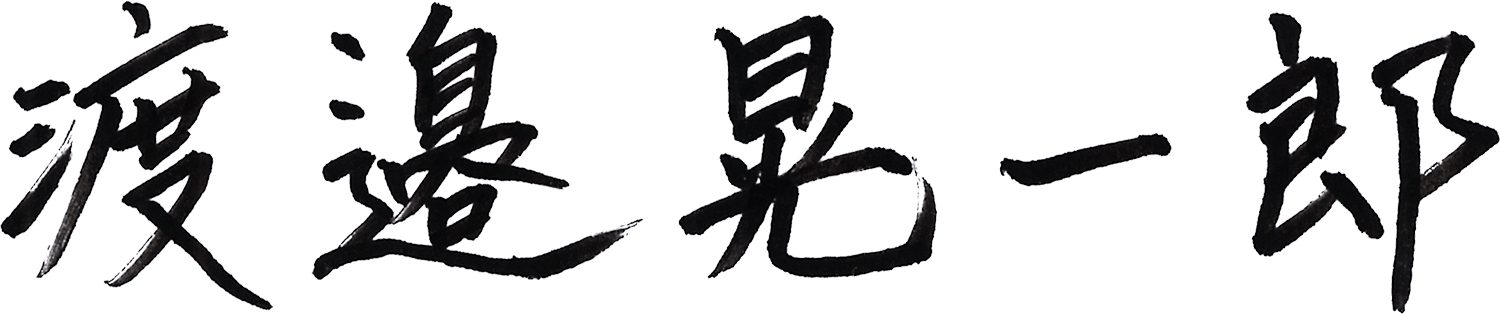 渡邉晃一郎